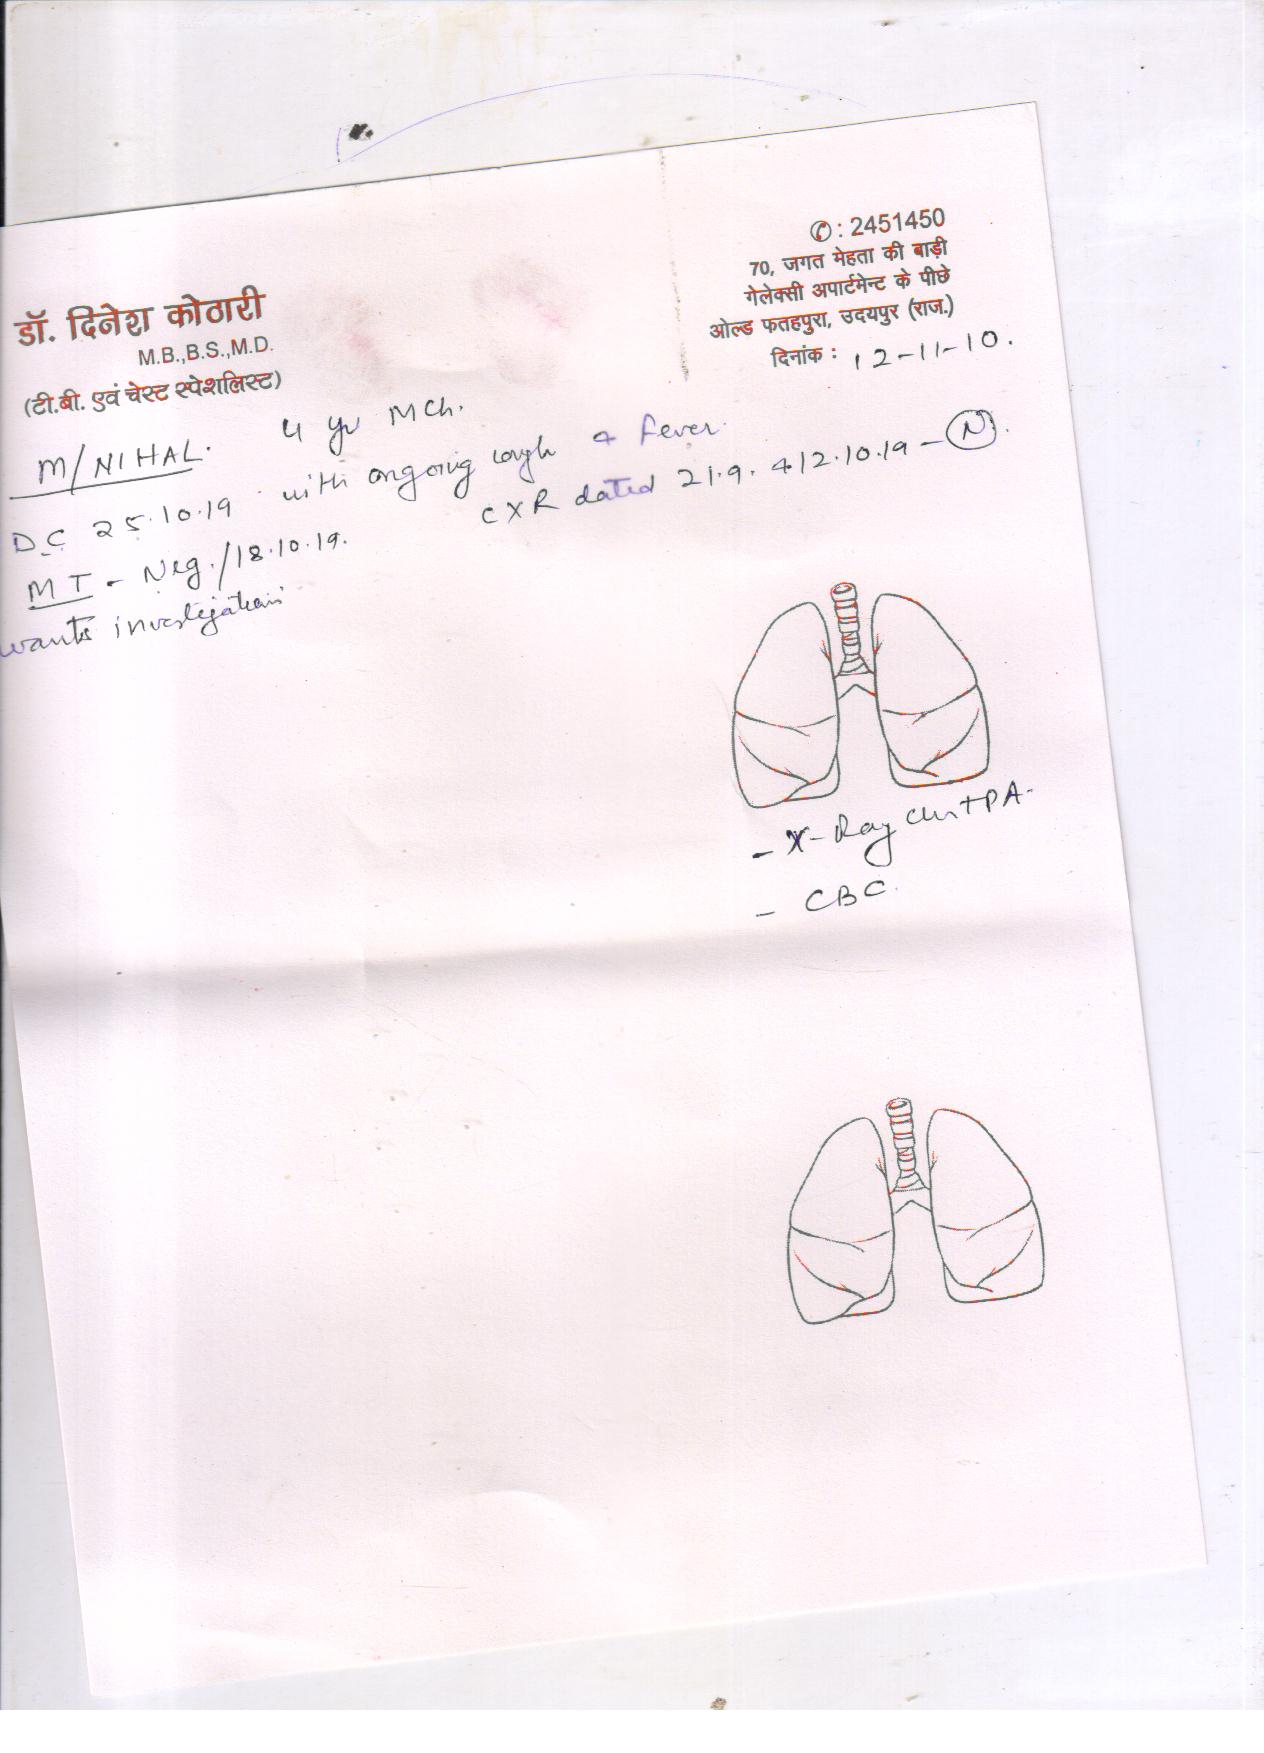 ✆: 2451450
70, जगत मेहता की बाड़ी
गेलेक्सी अपार्टमेन्ट के पीछे
ओल्ड फतहपुरा, उदयपुर (राज.)
दिनांक : 12-11-10.
डॉ. दिनेश कोठारी
M.B.,B.S.,M.D.
(टी.बी. एवं चेस्ट स्पेशलिस्ट)
M/NIHAL. 4 yr MCh.
D.C 25.10.19 with ongoing cough & Fever.
CXR dated 21.9. & 12.10.19 - (N).
MT - Neg./18.10.19.
wants investigations
- X-Ray Chest PA-
- CBC.